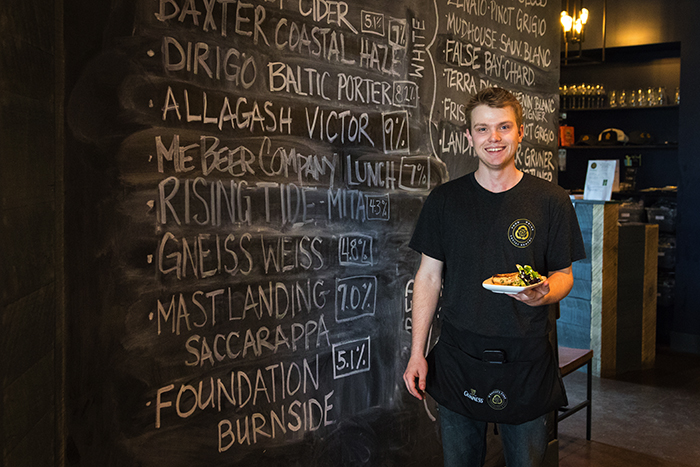 CIDER 5.1%
BAXTER COASTAL HAZE 4.3%
DIRIGO BALTIC PORTER 8.2%
ALLAGASH VICTOR 9%
ME BEER COMPANY LUNCH 7%
RISING TIDE-MITA 4.3%
GNEISS WEISS 4.8%
MAST LANDING 7.0%
SACCARAPPA
FOUNDATION 5.1%
BURNSIDE
WHITE
ZENATO-PINOT GRIGIO
MUDHOUSE SAUV. BLANC
FALSE BAY-CHARD.
TERRA
BLANC
GRIGIO
GRUNER
GUINNESS